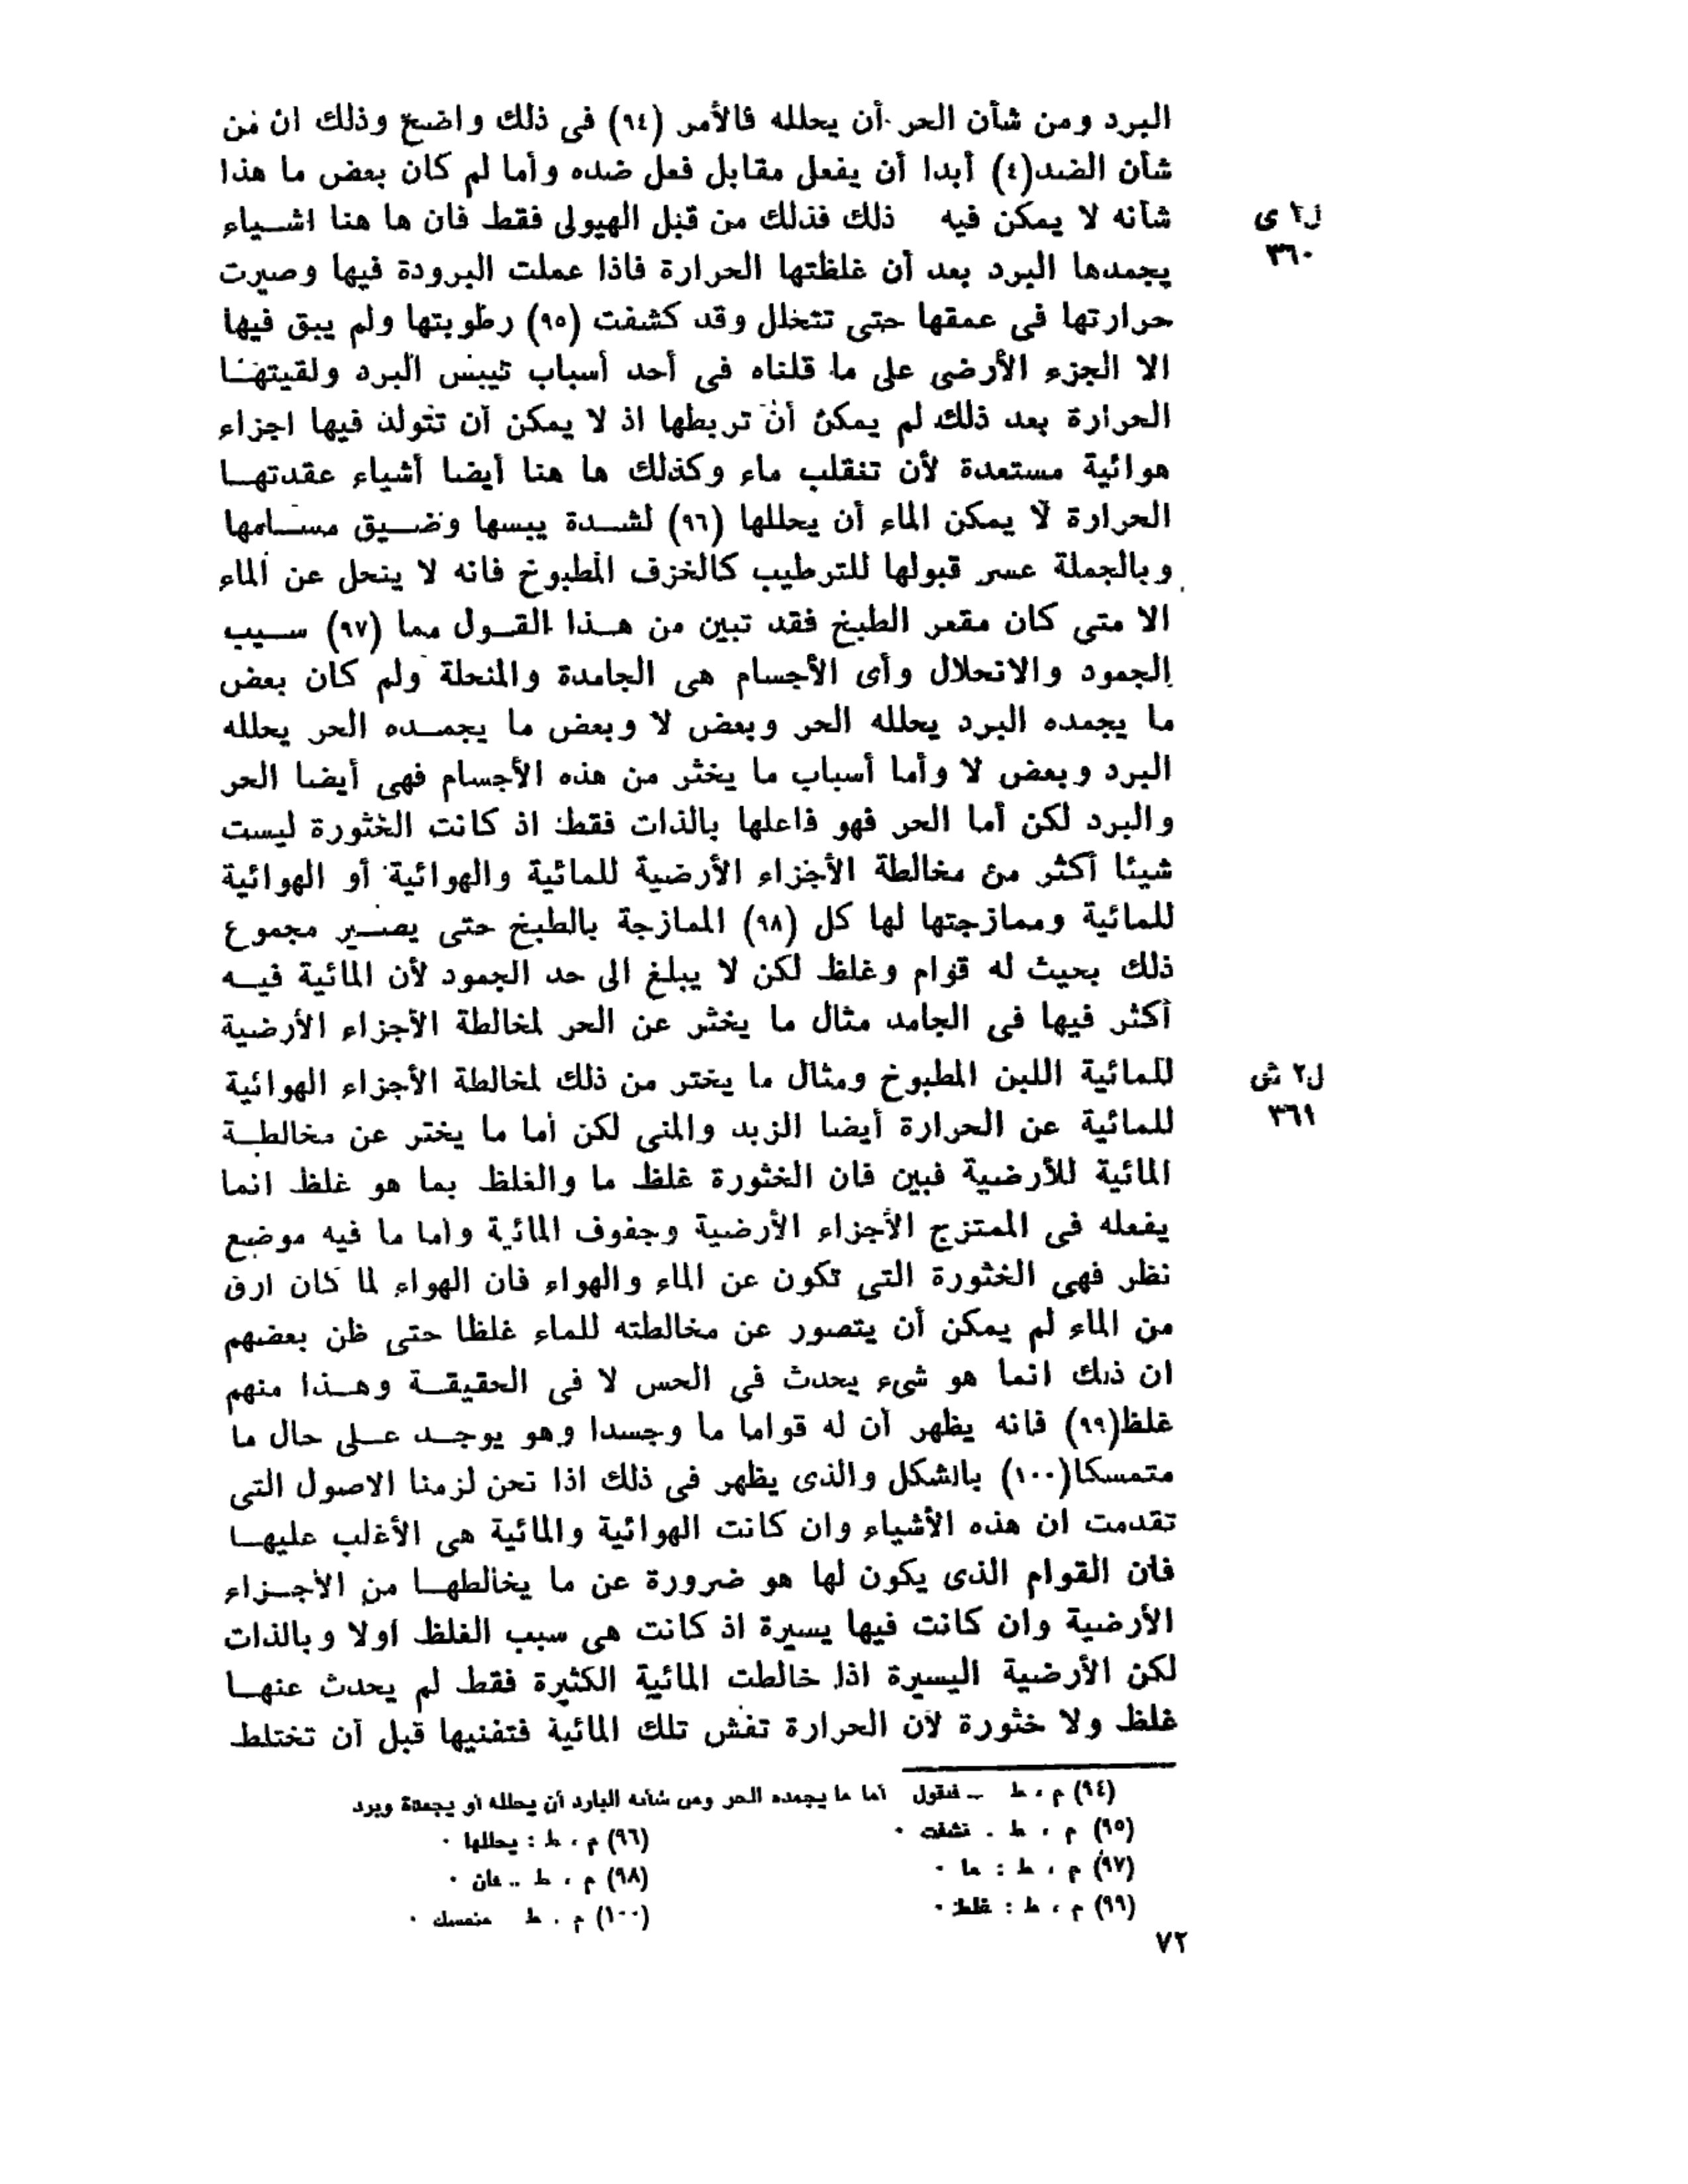 البرد ومن شأن الحر أن يحلله فالأمر (٩٤) فى ذلك واضح وذلك ان من
شأن الضد(٤) أبدا أن يفعل مقابل فعل ضده وأما لم كان بعض ما هذا
شأنه لا يمكن فيه ذلك فذلك من قبل الهيولى فقط فان ها هنا اشياء
ل٢ ى
٣٦٠
يجمدها البرد بعد أن غلظتها الحرارة فاذا عملت البرودة فيها وصيرت
حرارتها فى عمقها حتى تتخلل وقد كشفت (٩٥) رطوبتها ولم يبق فيها
الا الجزء الأرضى على ما قلناه فى أحد أسباب تيبس البرد ولقيتها
الحرارة بعد ذلك لم يمكن أن تربطها اذ لا يمكن أن تتولد فيها اجزاء
هوائية مستعدة لأن تنقلب ماء وكذلك ها هنا أيضا أشياء عقدتها
الحرارة لا يمكن الماء أن يحللها (٩٦) لشدة يبسها وضيق مسامها
وبالجملة عسر قبولها للترطيب كالخزف المطبوخ فانه لا ينحل عن الماء
الا متى كان مقعر الطبخ فقد تبين من هذا القول مما (٩٧) سبب
الجمود والانحلال وأى الأجسام هى الجامدة والمنحلة ولم كان بعض
ما يجمده البرد يحلله الحر وبعض لا وبعض ما يجمده الحر يحلله
البرد وبعض لا وأما أسباب ما يخثر من هذه الأجسام فهى أيضا الحر
والبرد لكن أما الحر فهو فاعلها بالذات فقط اذ كانت الخثورة ليست
شيئا أكثر من مخالطة الأجزاء الأرضية للمائية والهوائية أو الهوائية
للمائية وممازجتها لها كل (٩٨) الممازجة بالطبخ حتى يصير مجموع
ذلك بحيث له قوام وغلظ لكن لا يبلغ الى حد الجمود لأن المائية فيه
أكثر فيها فى الجامد مثال ما يخثر عن الحر لمخالطة الأجزاء الأرضية
للمائية اللبن المطبوخ ومثال ما يختر من ذلك لمخالطة الأجزاء الهوائية
ل٢ ش
٣٦١
للمائية عن الحرارة أيضا الزبد والمنى لكن أما ما يختر عن مخالطة
المائية للأرضية فبين فان الخثورة غلظ ما والغلظ بما هو غلظ انما
يفعله فى الممتزج الأجزاء الأرضية وجفوف المائية واما ما فيه موضع
نظر فهى الخثورة التى تكون عن الماء والهواء فان الهواء لما كان ارق
من الماء لم يمكن أن يتصور عن مخالطته للماء غلظا حتى ظن بعضهم
ان ذلك انما هو شىء يحدث فى الحس لا فى الحقيقة وهذا منهم
غلظ(٩٩) فانه يظهر أن له قواما ما وجسدا وهو يوجد على حال ما
متمسكا(١٠٠) بالشكل والذى يظهر فى ذلك اذا نحن لزمنا الاصول التى
تقدمت ان هذه الأشياء وان كانت الهوائية والمائية هى الأغلب عليها
فان القوام الذى يكون لها هو ضرورة عن ما يخالطها من الأجزاء
الأرضية وان كانت فيها يسيرة اذ كانت هى سبب الغلظ اولا وبالذات
لكن الأرضية اليسيرة اذا خالطت المائية الكثيرة فقط لم يحدث عنها
غلظ ولا خثورة لأن الحرارة تفش تلك المائية فتفنيها قبل أن تختلط
(٩٤) م ، ط ــ فنقول أما ما يجمده الحر ومن شأنه البارد أن يحلله أو يجمده وبرد
(٩٥) م ، ط . نشفت ٠
(٩٦) م ، ط : يحللها ٠
(٩٧) م ، ط : ما ٠
(٩٨) م ، ط .. فان ٠
(٩٩) م ، ط : غلط ٠
(١٠٠) م . ط متمسك ٠
٧٢